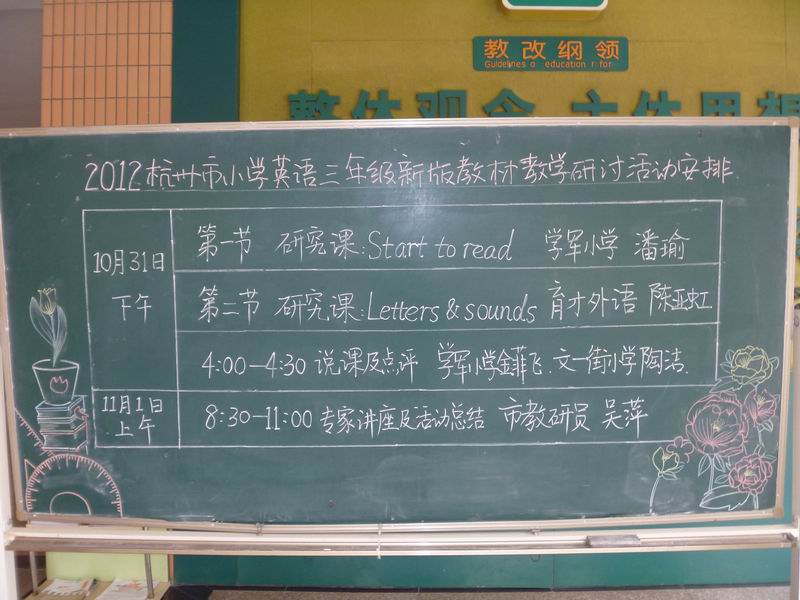 教改纲领
Guidelines o education r for
整体观念 主体思想
2012杭州市小学英语三年级新版教材教学研讨活动安排
10月31日
下午
第一节 研究课:Start to read 学军小学 潘瑜
第二节 研究课:Letters & sounds 育才外语 陈亚虹
4:00—4:30 说课及点评 学军小学金菲飞、文一街小学陶洁.
11月1日
上午
8:30—11:00 专家讲座及活动总结 市教研员 吴萍